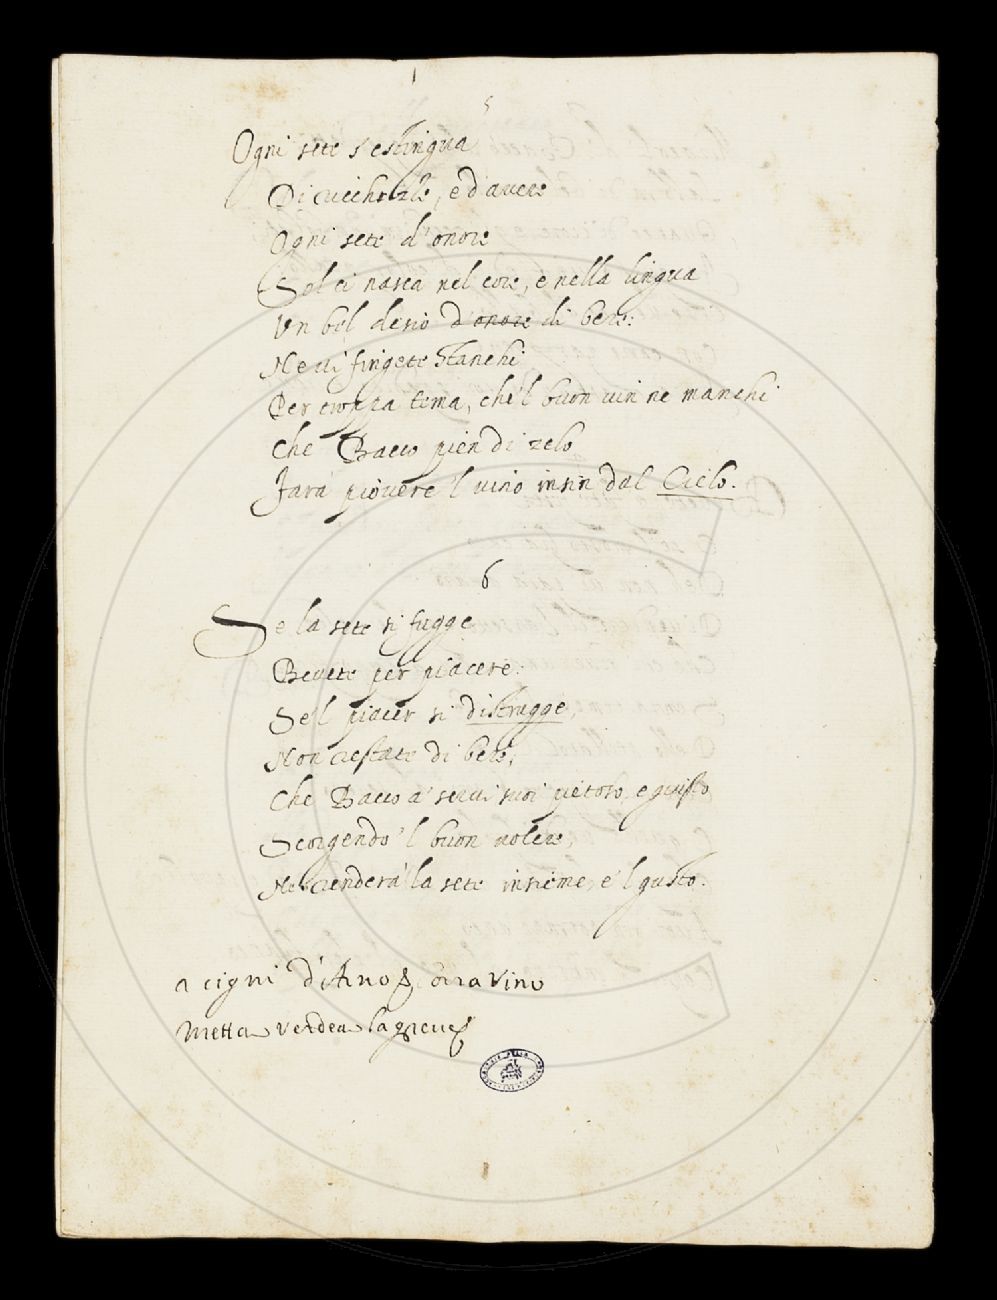 5
Ogni sete s'estingua
Di ricchezze, e d'avere
Ogni sete d'onore
Sol ci nasca nel core, e nella lingua
Un bel desio d'onore di bere:
Ne vi fingete stanchi
Per troppa tema, che'l buon vin ne manchi
Che Bacco pien di zelo
Farà piovere l vino insin dal Cielo.
6
Se la sete si fugge
Bevete per piacere:
Se'l piacer si distrugge,
Non restate di bere,
Che Bacco a' servi suoi pietoso, e giusto
Scorgendo 'l buon volere,
Ne renderà la sete insieme, e 'l gusto.
a cigni d'Arno
Vino
Metta Verdea la